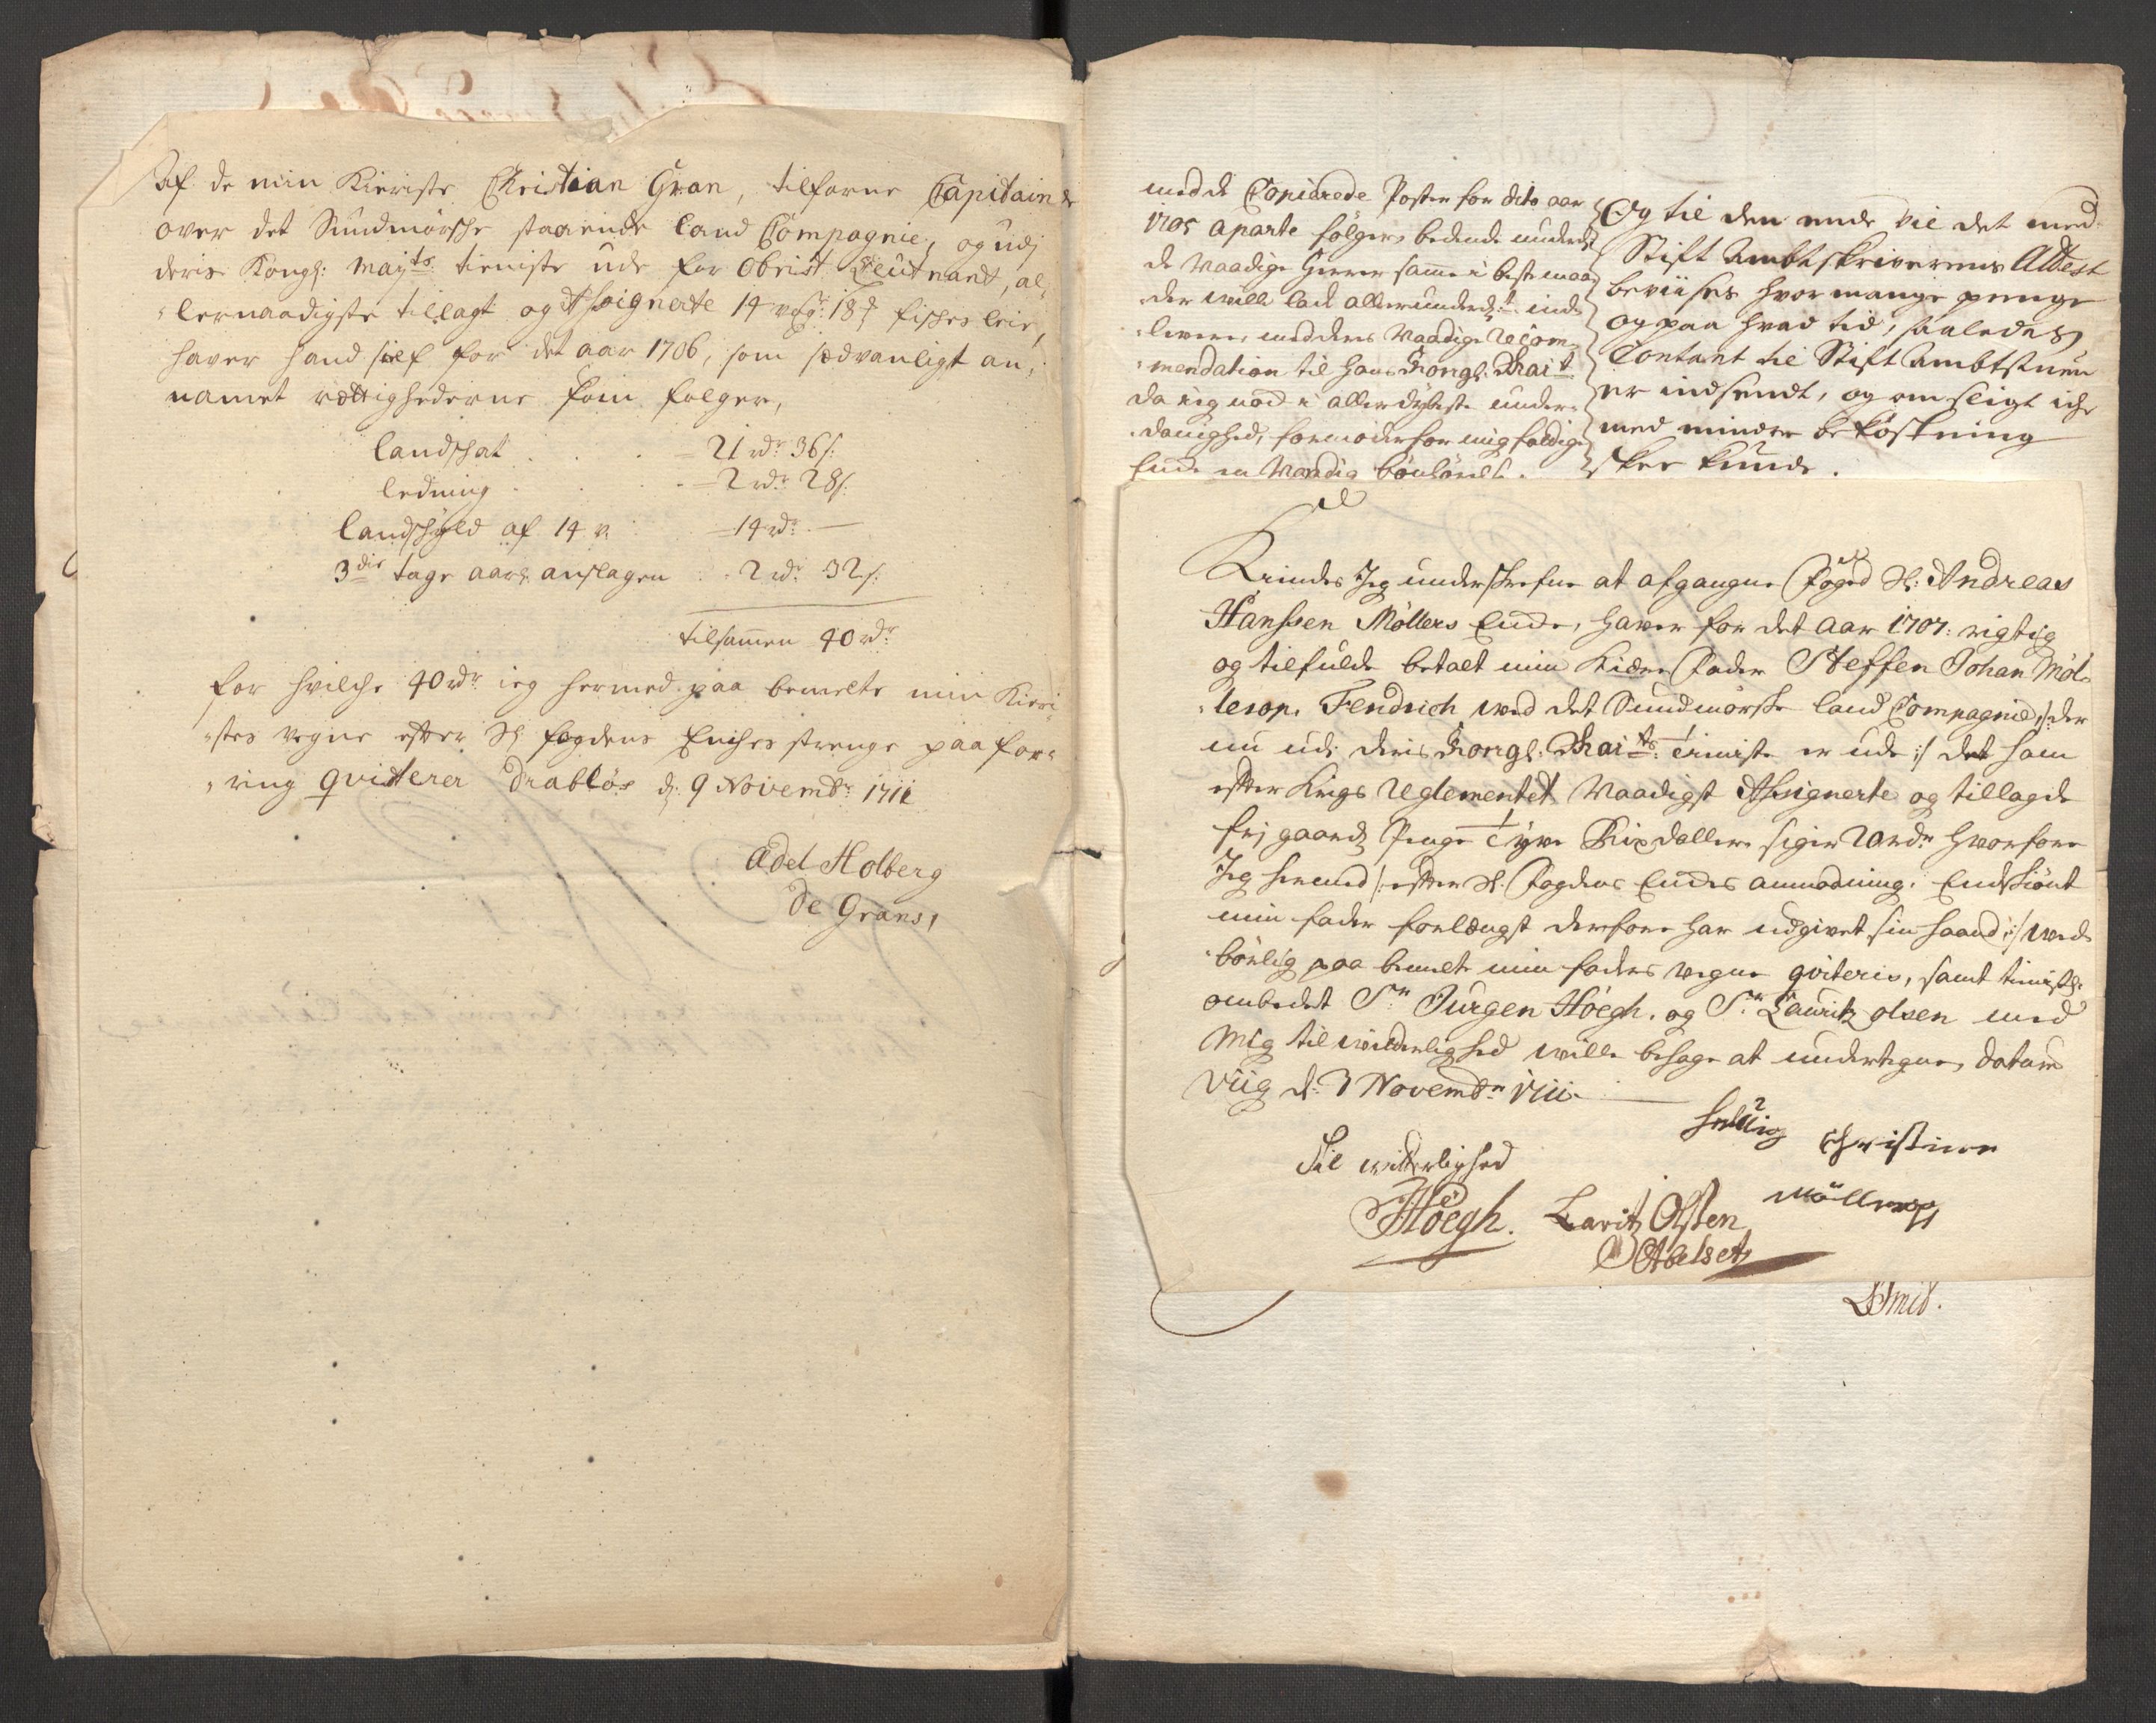 af de min Kieriste Christian Gran, tilforne Capitain
over det Sundmörsche staaende land Compagnie, og udj
deris Kongl: Mayts tieniste ude for Obrist Leutnandt, al-
lernaadigste tillagt og Assignerte 14 vog: 18 fisches leie,
haver hand sielf for det aar 1706, som sædvanligt an-
namet rettighederne som folger,
landschat - 21 rdr 36 s:
ledning - 2 rdr 28 s:
landschyld af 14 v. - 14 rdr -
3die tage aarl: anslagen - 2 rdr 32 s:
tilsammen 40 rdr
for hvilche 40 rdr ieg hermed paa bemelte min Kieri-
stes vegne efter Sl fogdens Enches strenge paa for-
ring qviterer Drabløs d: 9 Novembr 1711
Adel Holberg
De Grans,
med de Copierede Poster for dito aar
1705 aparte følger, bedende underd
de Naadige Herrer samme i beste maa
der wille lade allerunderd:t ind
levere, med deres Naadige Recom-
mendation til Hans Kongl: Mait
da ieg nød i allerdybeste under-
danighed, formoder for mig fattige
Encke en Naadig bönhörelse.
Og til den ende vil det med
Stift Ambtskriverens Attest
beviises hvor mange penge
og paa hvad tid, saaledes
Contant til Stift Ambtstuen
er indsendt, og om sligt iche
med mindre bekostning
skee kunde.
Kiendes Jeg underschrefne at afgangne Foged Sl: Andreas
Hanssen Möllers Encke, haver for det aar 1707: rigtig
og tilfulde betalt min Kiære Fader Steffen Johan Möl-
lerop. Fendrich wed det Sundmörske land Compagnie /: der
nu udi deris Kongl: Maits tieniste er ude :/ det ham
efter Krigs Reglementet Naadigst Assignerte og tillagde
frj gaards Penge Tyve Rixdaller siger 20 rdr hvorfore
Jeg hermed /: efter Sl. Fogdens Enckes anmodning. Endskiönt
min fader forlengst derfore har udgivet sin haand :/ wed-
börlig paa bemelte min faders vegne qviterer, samt tienstl:
ombedet Sr Jürgen Höegh. og Sr. Lauritz Olsen med
Mig til witterlighed wille behage at undertegne, datum
Viig d: 3 Novembr 1711.
Helvig Christine
Möllerop
Til witterlighed
JHöegh. Lavritz Olsten
Abelset
Smid.